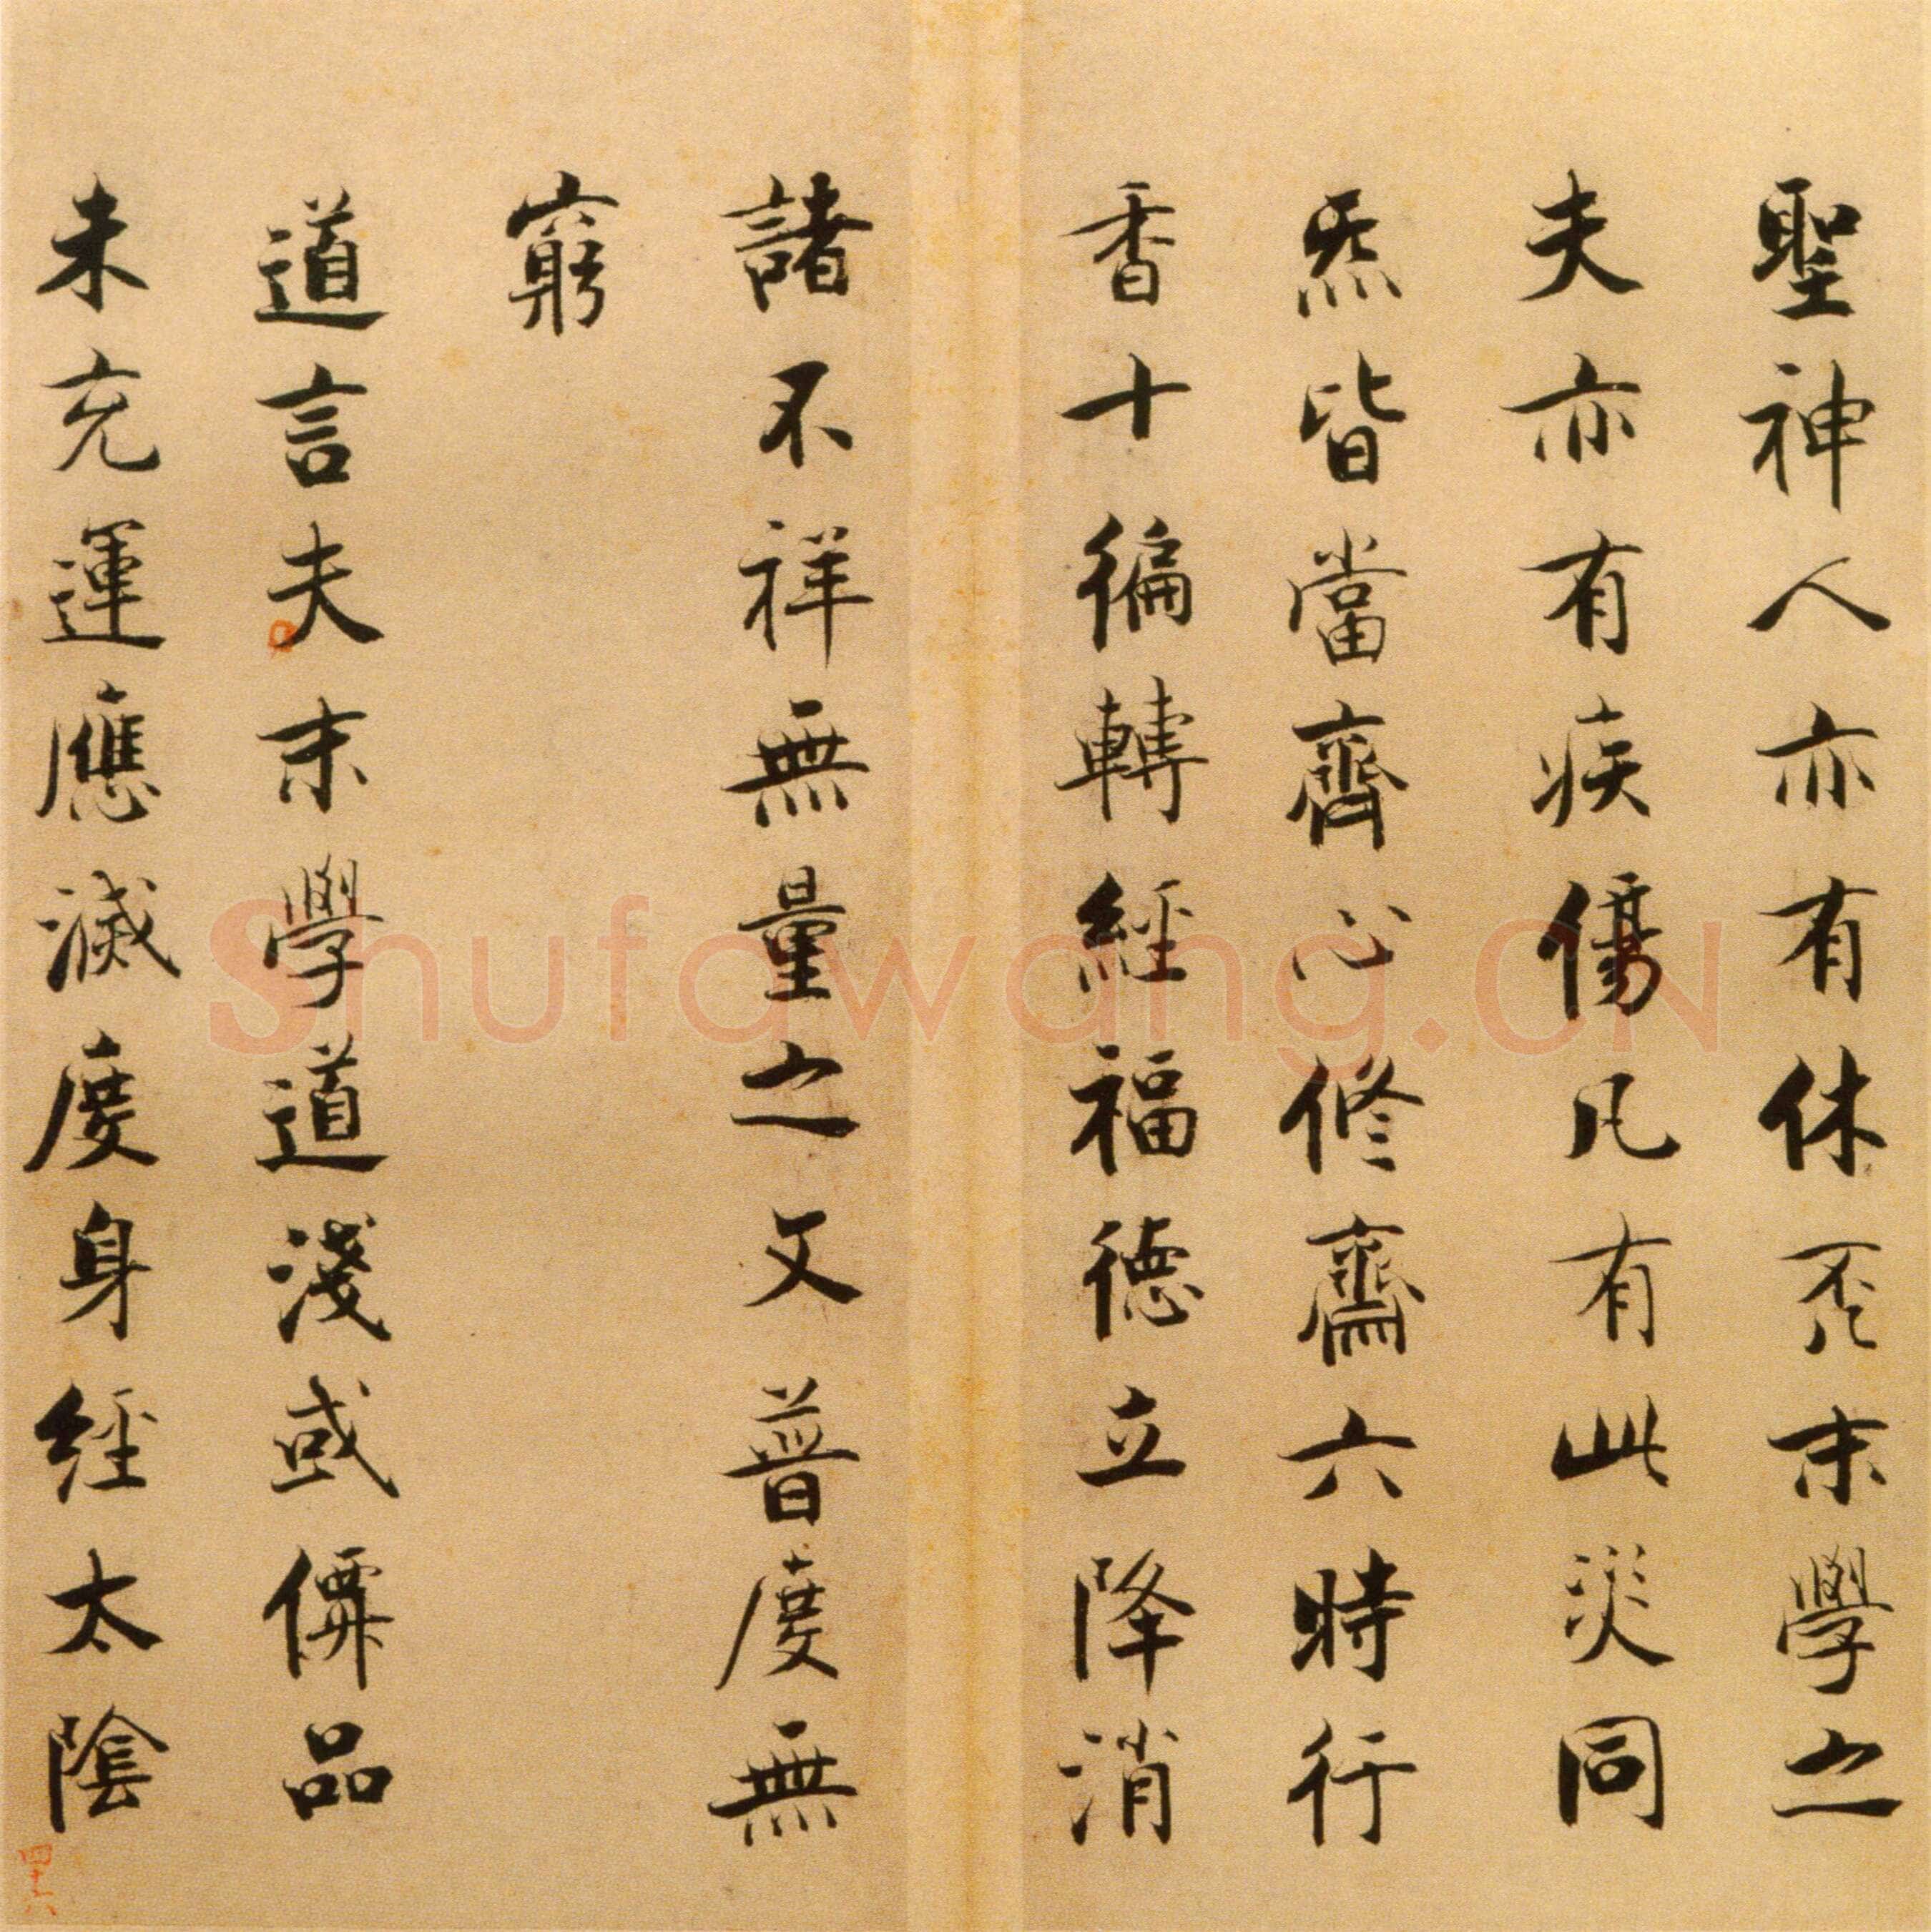 聖神人亦有休否末學之
夫亦有疾傷凡有此災同
炁皆當齊心修齋六時行
香十徧轉經福德立降消
諸不祥無量之文普度無
窮
道言夫末學道淺或僊品
未充運應滅度身經太陰
四十六
Shufawang.CN